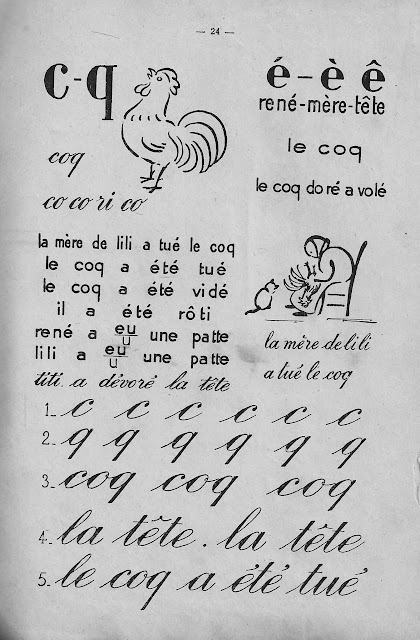 — 24 —
c-q
é-è ê
rené-mère-tête
coq
co co ri co
le coq
le coq doré a volé
la mère de lili a tué le coq
le coq a été tué
le coq a été vidé
il a été rôti
rené a eu une patte
u
lili a eu une patte
u
titi a dévoré la tête
la mère de lili
a tué le coq
1_ c c c c c c
2_ q q q q q q
3_ coq coq coq
4_ la tête. la tête
5_ le coq a été tué